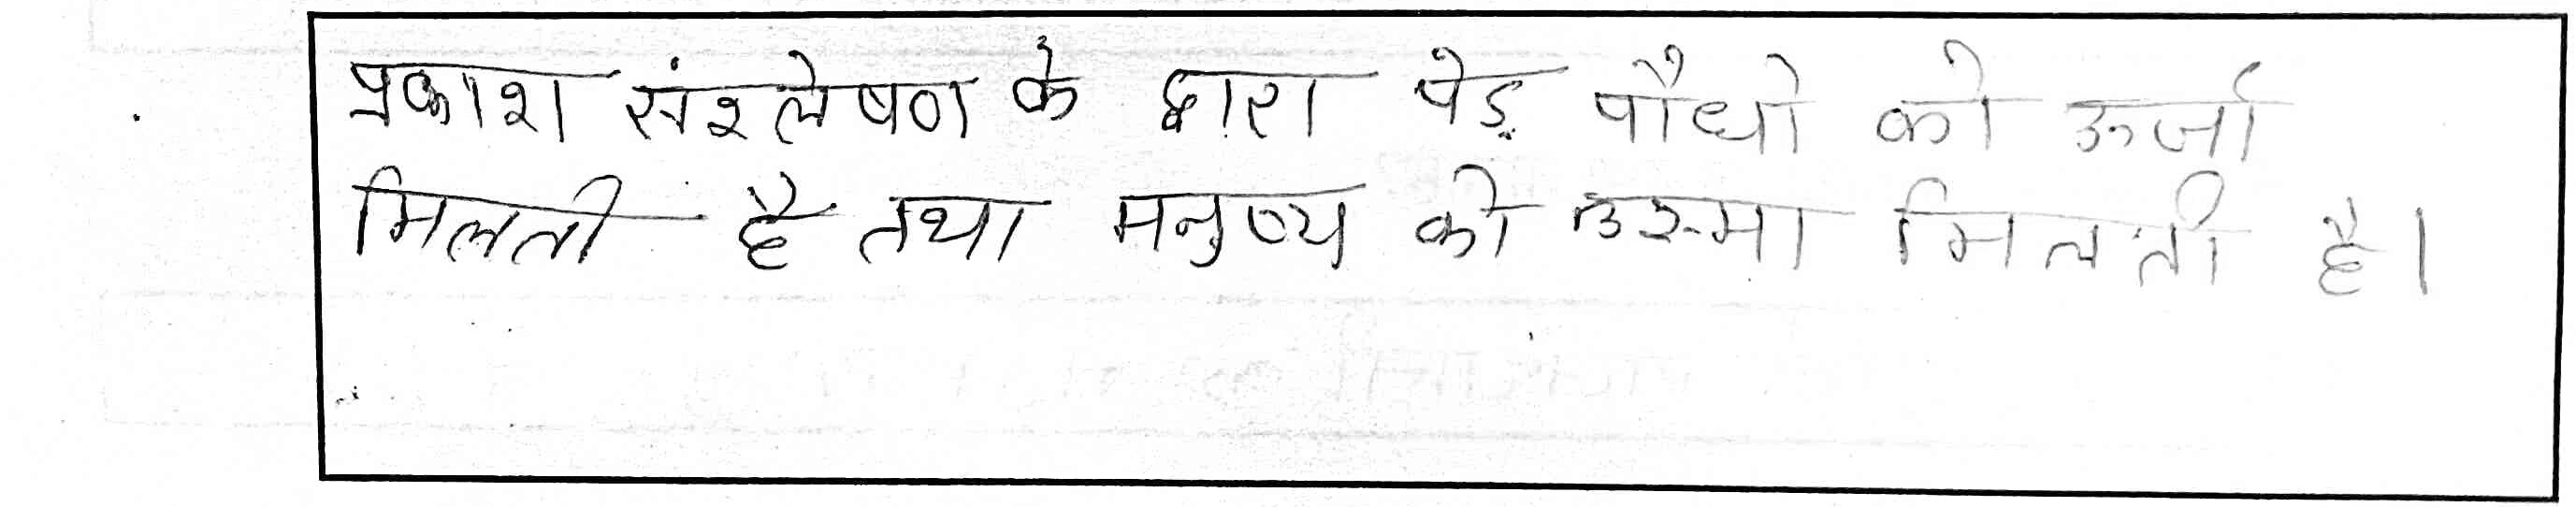 प्रकाश संश्लेषण के द्वारा पेड़ पौधो को ऊर्जा
मिलती है तथा मनुष्य को उश्मा मिलती है।